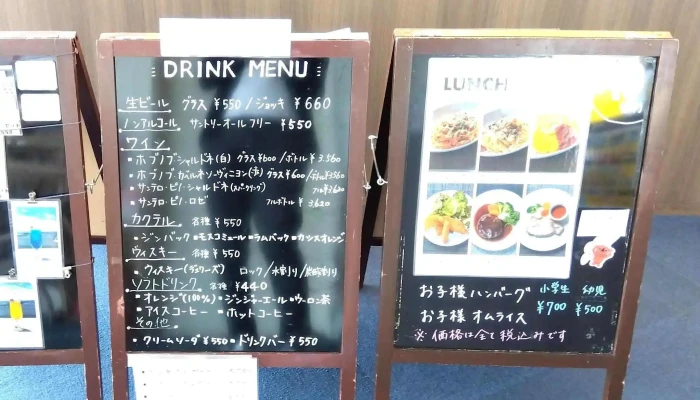 DRINK MENU
生ビール グラス ¥550 / ジョッキ ¥660
ノンアルコール サントリーオールフリー ¥550
ワイン
・ホブノブシャルドネ(白) グラス¥600 / ボトル¥3.560
・ホブノブカベルネソーヴィニヨン(赤) グラス¥600 / ボトル¥3.560
・サンテロ・ピノ・シャルドネ(スパークリング) フルボトル
・サンテロ・ピノ・ロゼ フルボトル ¥3.620
カクテル 各種 ¥550
・ジンバック ・モスコミュール ・ラムバック ・カシスオレンジ
ウィスキー 各種 ¥550
・ウィスキー ロック / 水割り / 炭酸割り
ソフトドリンク 各種 ¥440
・オレンジ(100%) ・ジンジャーエール ・ウーロン茶
・アイスコーヒー ・ホットコーヒー
その他
・クリームソーダ ¥550 ・ドリンクバー ¥550
LUNCH
小学生 幼児
お子様ハンバーグ ¥700 ¥500
お子様オムライス
※価格は全て税込みです